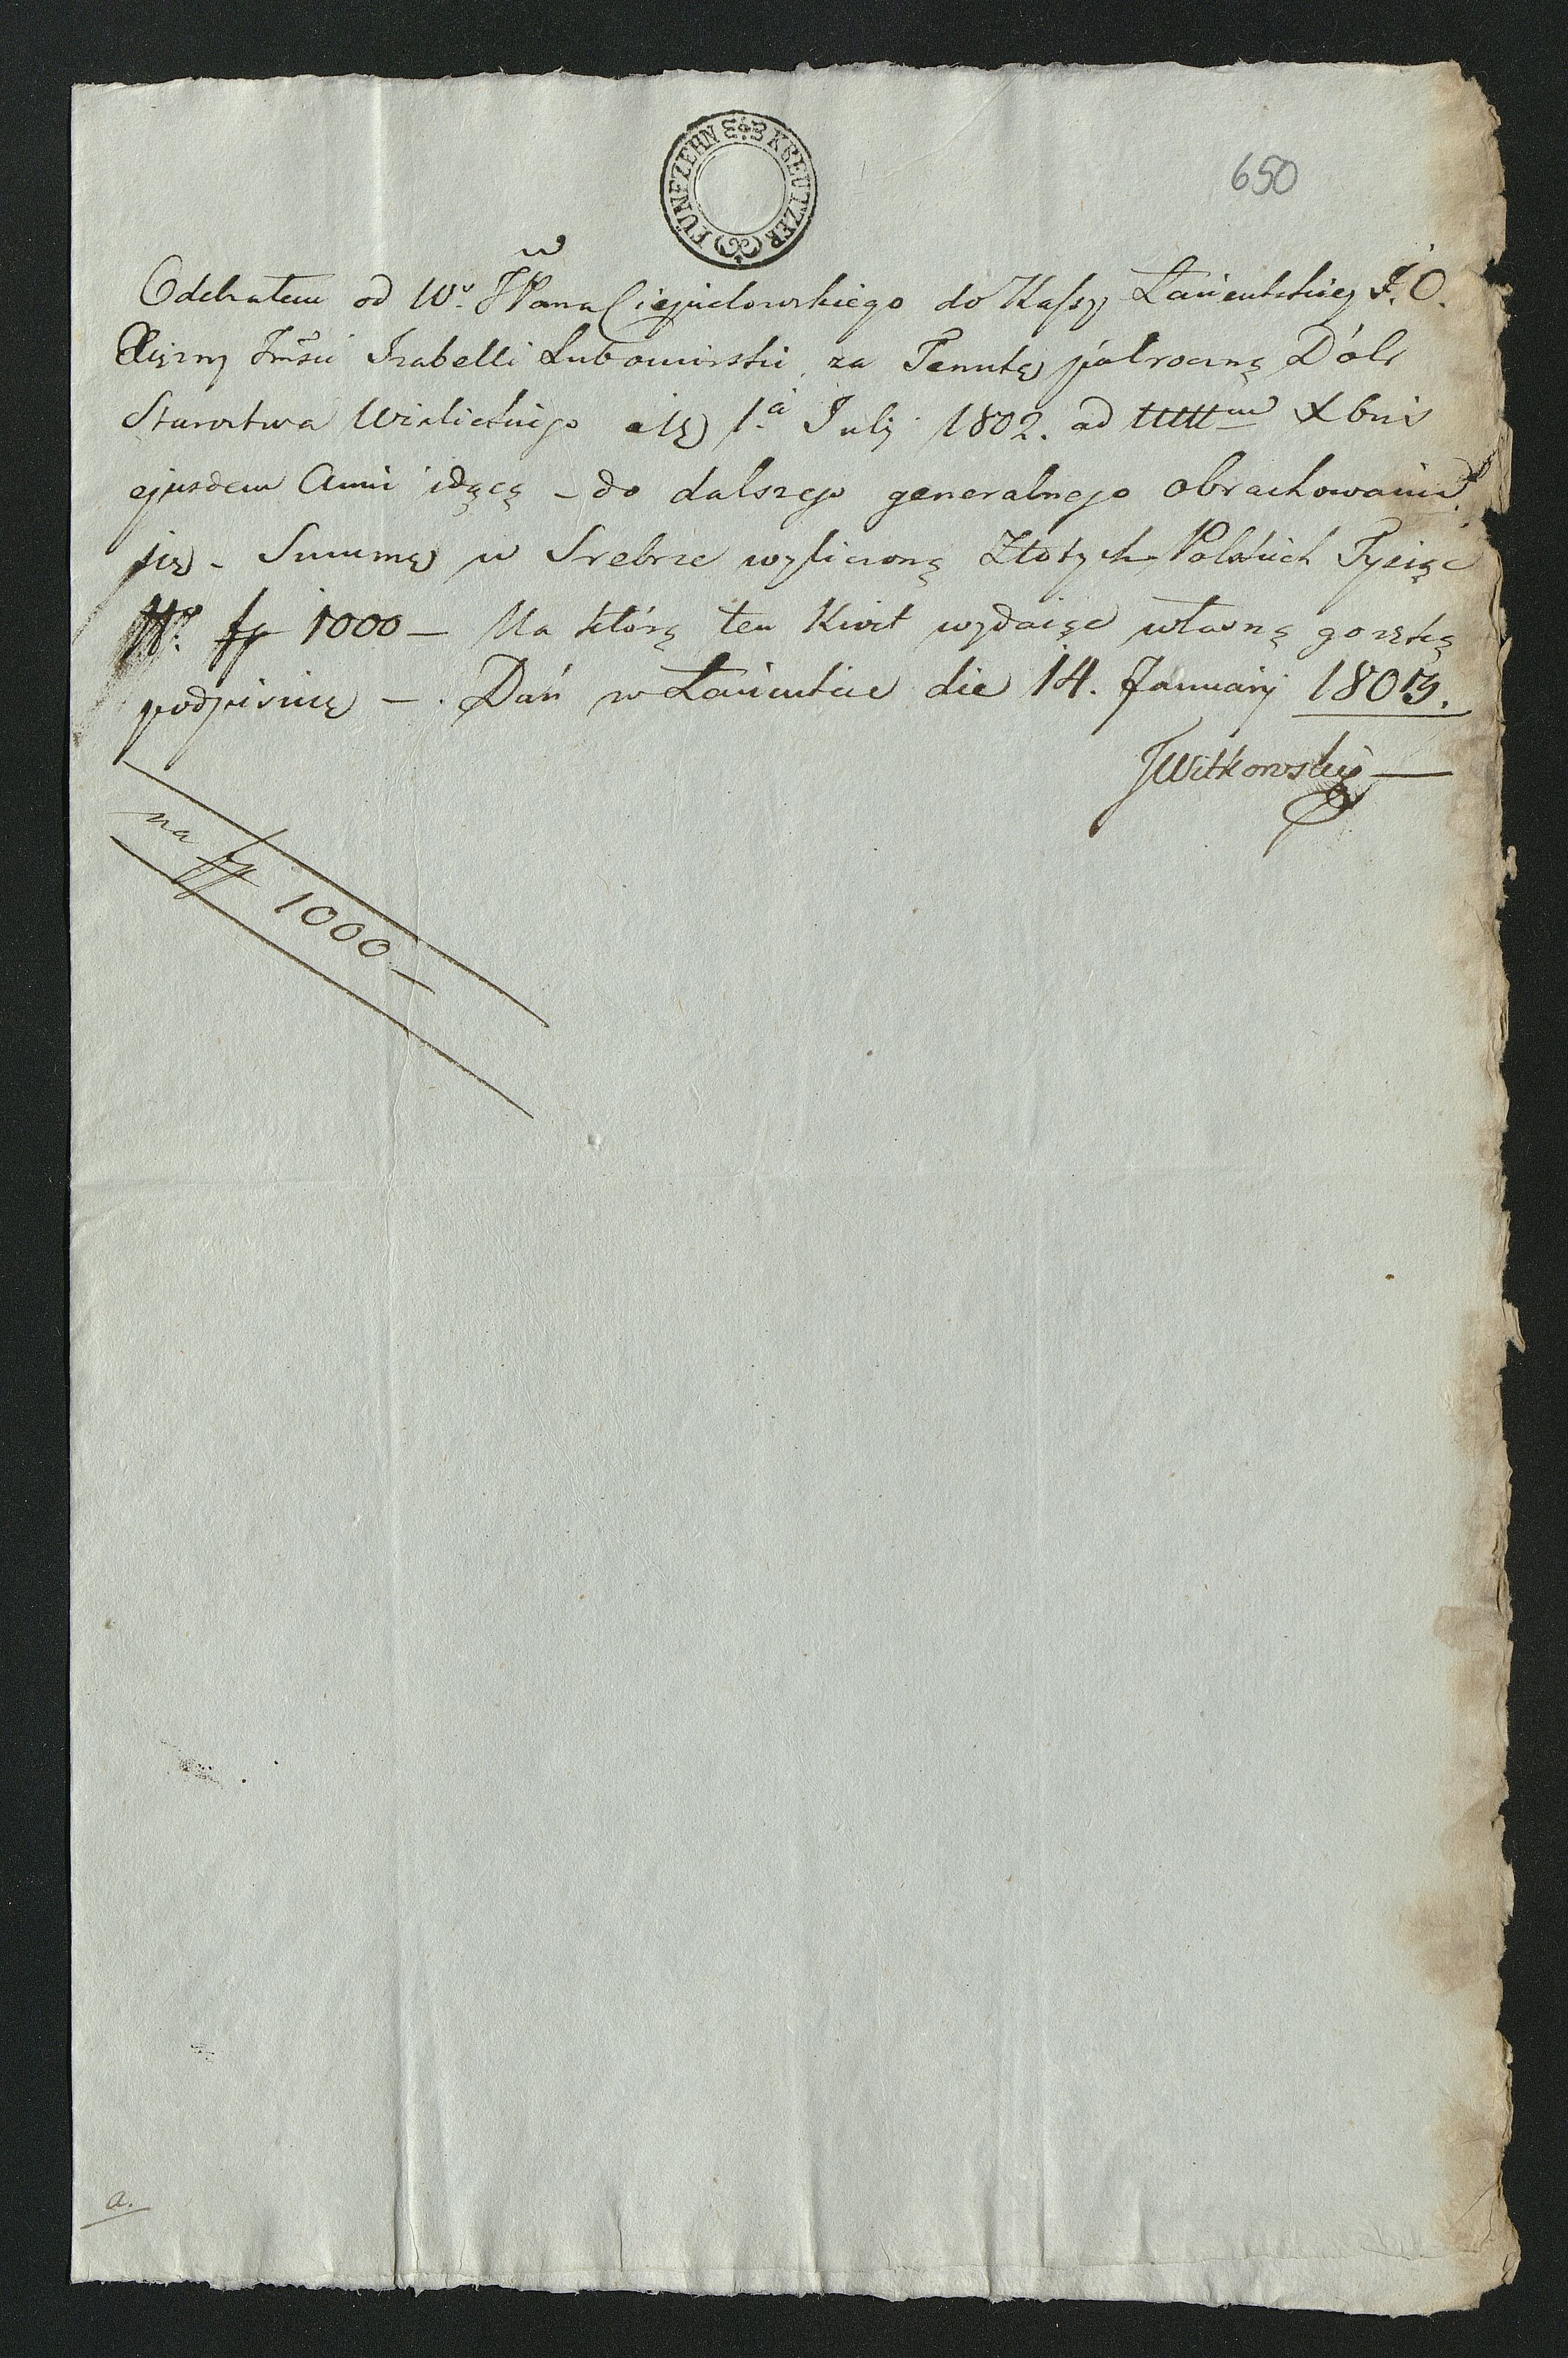 FÜNFZEHN KREUTZER
650
Odebrałem od Wo. JPana Ciepielowskiego do Kassy Łańcutskiey J. O.
Xiężny Jmści Izabelli Lubomirski za Tenutę pułroczną Dóbr
Starostwa a 1.a Julij 1802. ad ultimam Xbris
ejusdem Anni idącą - do dalszego generalnego obrachowania
się - Summę w Srebrze wyliczoną Złotych Polskich Tysiąc
No. fp 1000 - Na którą ten Kwit wydaiąc własną go ręką
podpisuię -. Dań w Łańcutie die 14. Januarij 1803.
JWitkowski
na fp 1000 -
a.